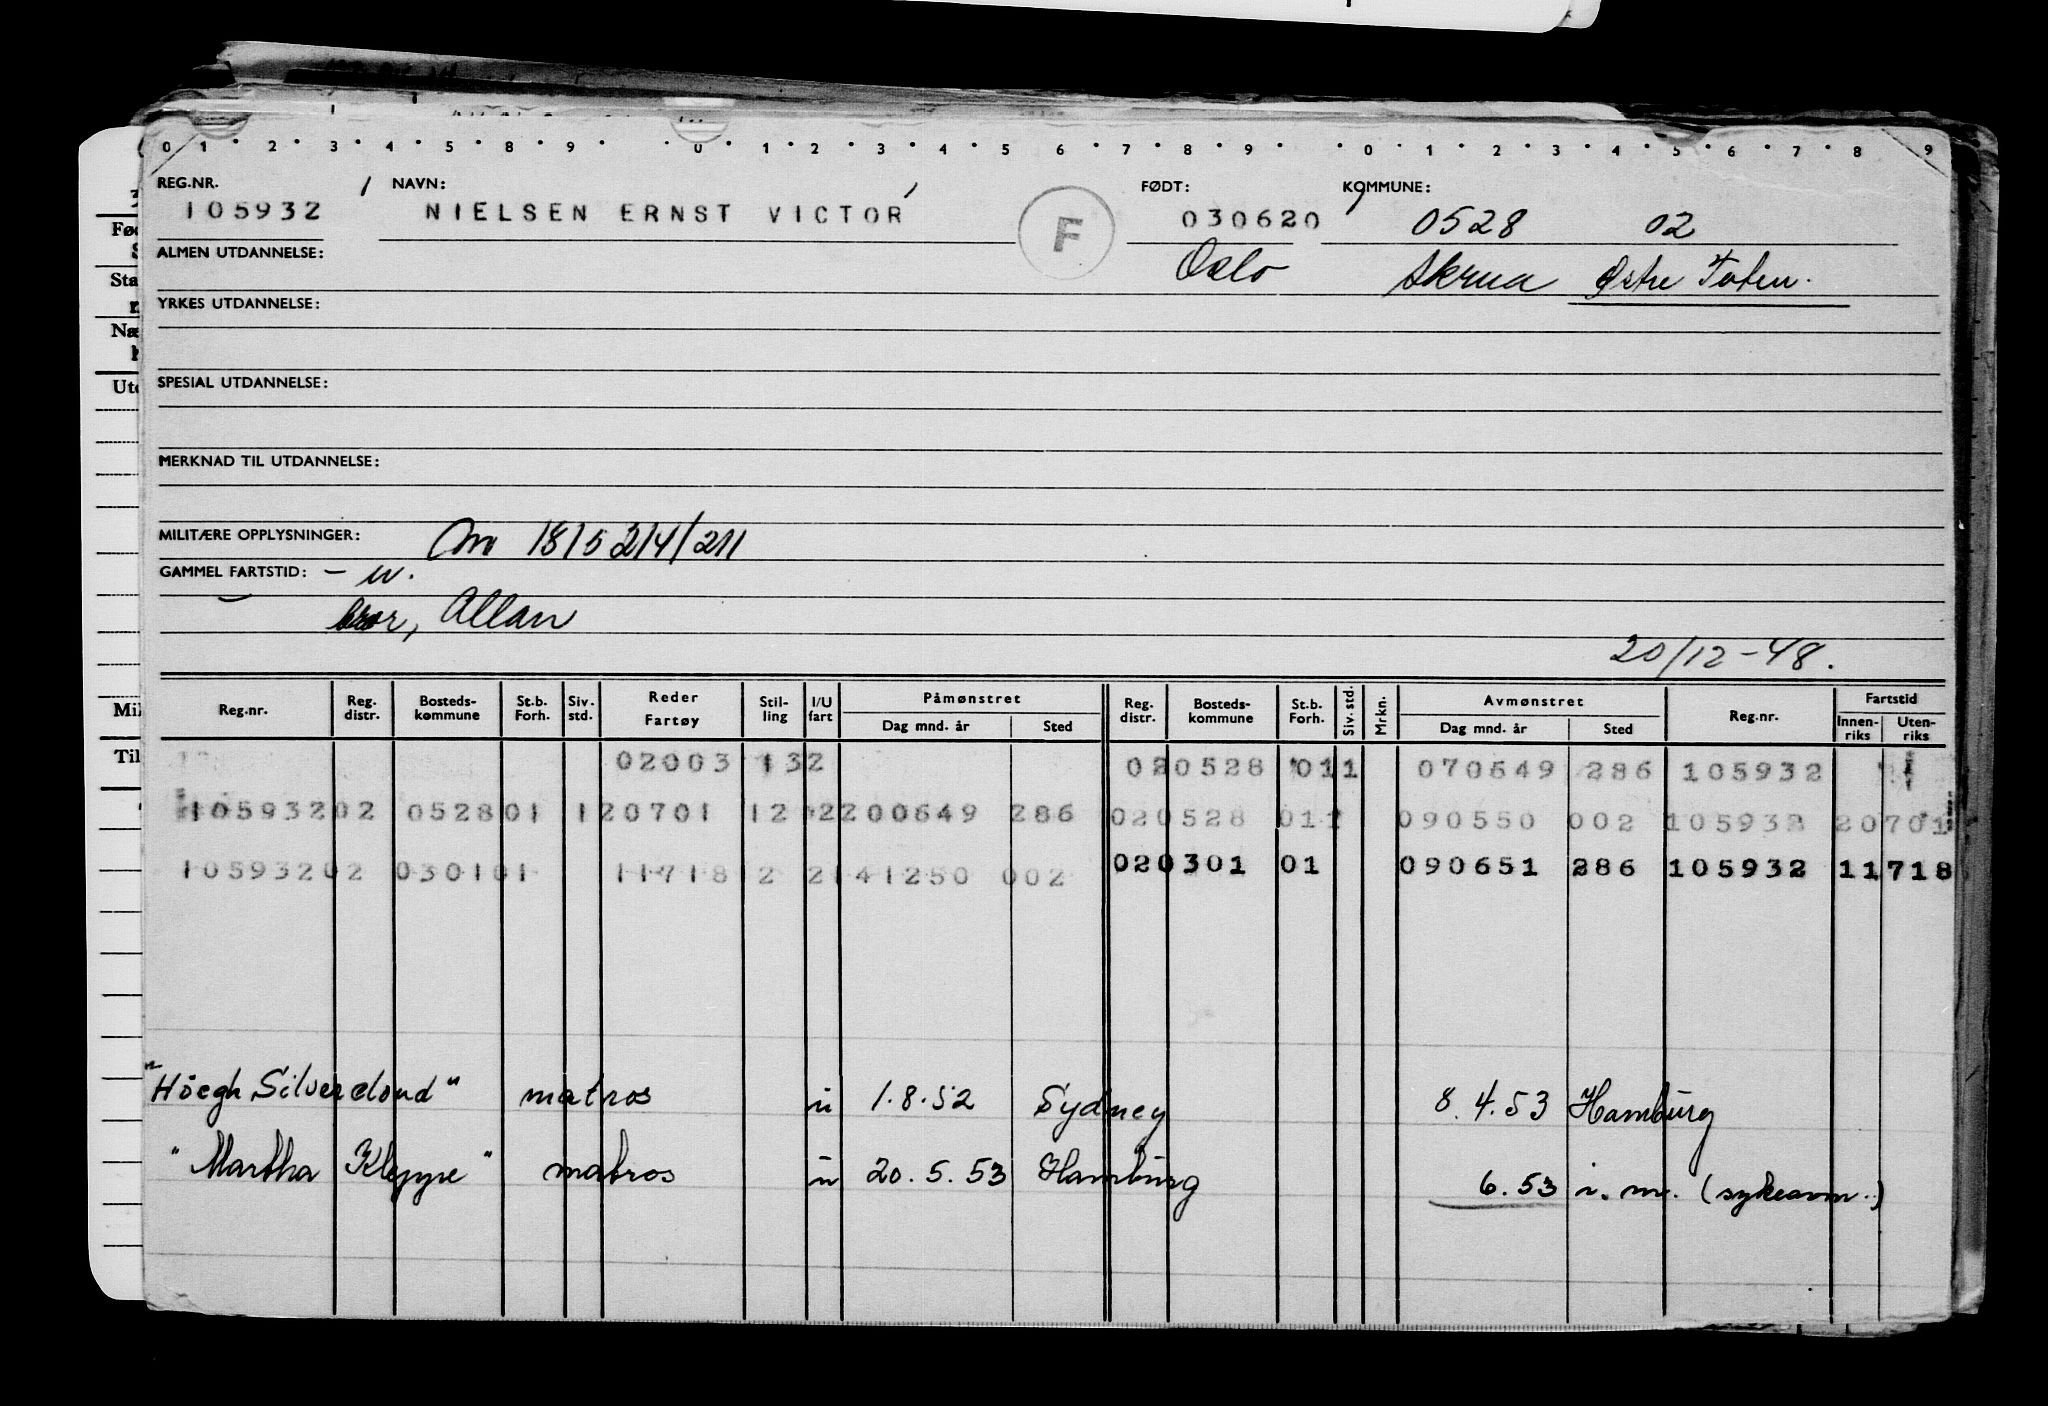 0 1 2 3 4 5 8 9 0 1 2 3 4 5 6 7 8 9 0 1 2 3 4 5 6 7 8 9
REG.NR. NAVN: FØDT: KOMMUNE:
105932 NIELSEN ERNST VICTOR F 030620 0528 02
ALMEN UTDANNELSE: Oslo Skrua Østre Toten.
YRKES UTDANNELSE:
SPESIAL UTDANNELSE:
MERKNAD TIL UTDANNELSE:
MILITÆRE OPPLYSNINGER: 1815214/211
GAMMEL FARTSTID: – u.
bror, Allan
20/12-48.
Reg.nr. Reg. distr. Bosteds- kommune St.b. Forh. Siv. std. Reder Fartøy Stil- ling I/U fart Påmønstret Dag mnd. år Sted Reg. distr. Bosteds- kommune St.b. Forh. Siv. std. Mrkn. Avmønstret Dag mnd. år Sted Reg.nr. Fartstid Innen- riks Uten- riks
02003 132 020528 011 070649 286 105932
10593202 052801 120701 12 2200649 286 020528 011 090550 002 105932 20701
10593202 030101 11718 2 2141250 002 020301 01 090651 286 105932 11718
"Höegh Silvercloud" matros u 1.8.52 Sydney 8.4.53 Hamburg
"Martha Kleppe" matros u 20.5.53 Hamburg 6.53 i.m. (sykeavm.)